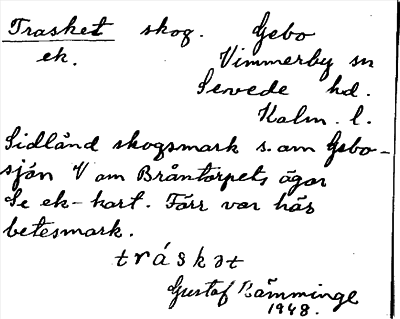 Trasket skog. Gebo
ek. Vimmerby sn
Sevede hd.
Kalm. l.
Sidländ skogsmark s. om Gebo-
sjön V om Bråntorpets ägor
Se ek-kart. Förr var här
betesmark.
tráskət
Gustaf Rämminge
1948.